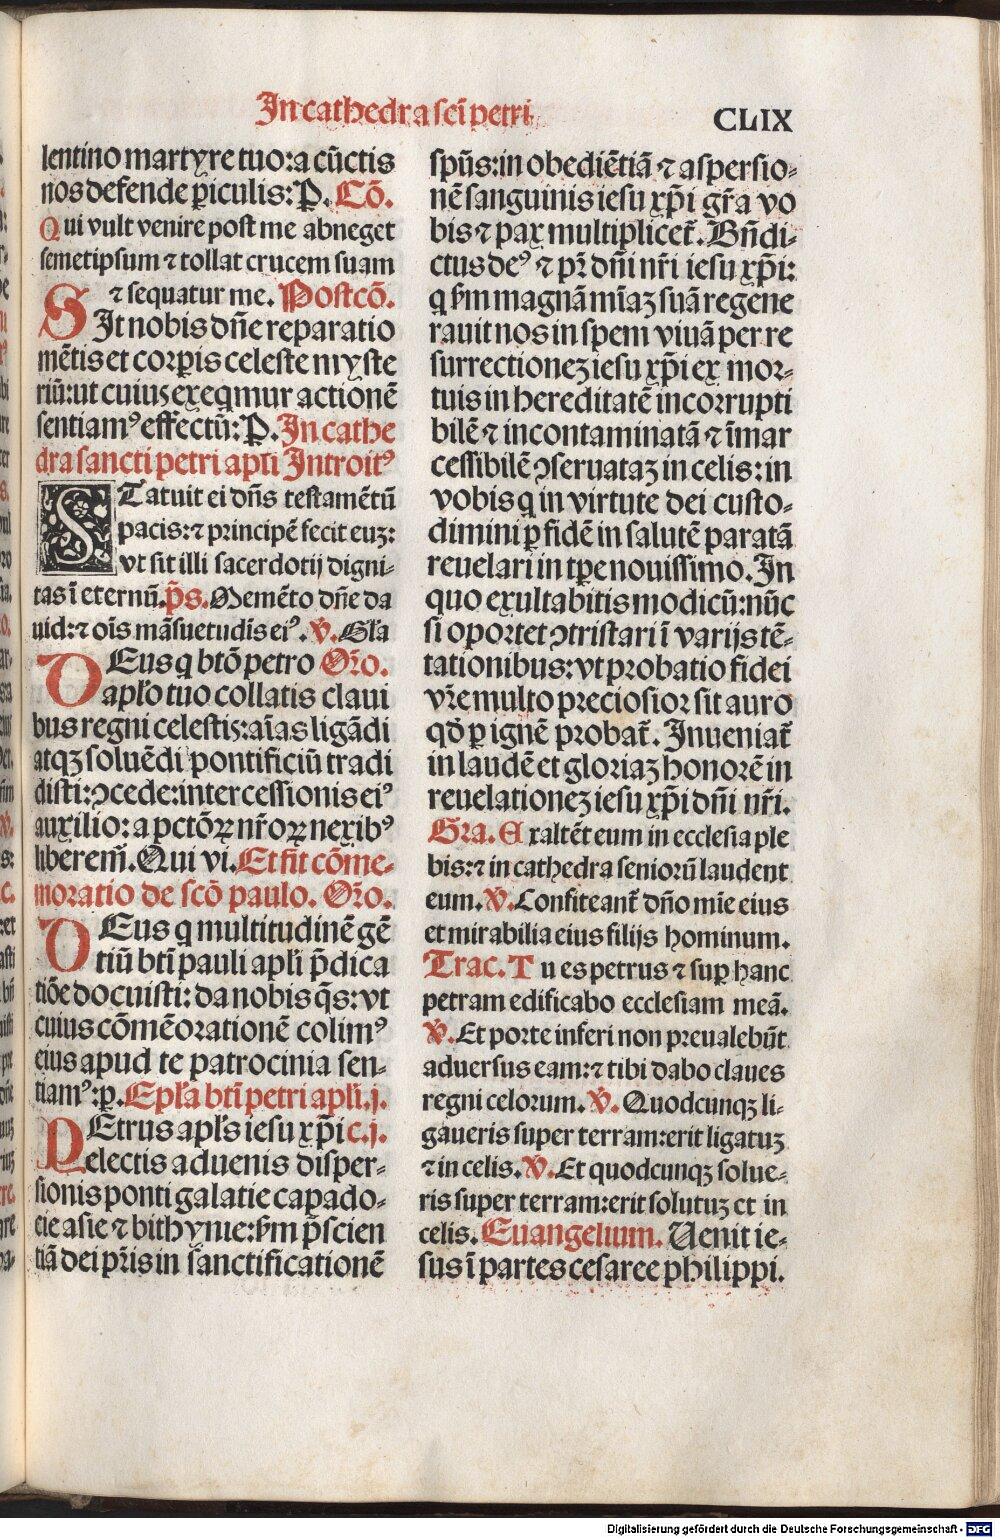 In cathedra scī petri.
CLIX
lentino martyre tuo: a cūctis
nos defende ꝑiculis: P. Cō.
Qui vult venire post me abneget
semetipsum ⁊ tollat crucem suam
⁊ sequatur me. Postcō.
SIt nobis dn̄e reparatio
mētis et corꝑis celeste myste
riū: ut cuius exeqmur actionē
sentiamꝰ effectū: P. In cathe
dra sancti petri apłi Introitꝰ
STatuit ei dn̄s testamētū
pacis: ⁊ principē fecit euʒ:
vt sit illi sacerdotij digni-
tas ī eternū. p̄s. Memēto dn̄e da
uid: ⁊ oīs māsuetudīs eiꝰ. ℣. Gła
DEus q btō petro Oŕo.
apło tuo collatis claui
bus regni celestis: aīas ligādi
atqʒ soluēdi pontificiū tradi
disti: ꝯcede: intercessionis eiꝰ
auxilio: a pctōꝝ nr̄oꝝ nexibꝰ
liberem̄. Qui vi. Et fit cōme-
moratio de scō paulo. Oŕo.
DEus q multitudinē gē
tiū btī pauli apłi p̄dica
tiōe docuisti: da nobis q̄s: vt
cuius cōmēorationē colimꝰ
eius apud te patrocinia sen-
tiamꝰ: p. Epła btī petri apłi. j.
PEtrus apłs iesu xp̄i c. j.
electis aduenis disper-
sionis ponti galatie capado-
cie asie ⁊ bithynie: ẜm p̄scien
tiā dei pr̄is in sanctificationē
spūs: in obediētiā ⁊ aspersio-
nē sanguinis iesu xp̄i gr̄a vo
bis ⁊ pax multiplicet̄. Bn̄di-
ctus deꝰ ⁊ pr̄ dn̄i nr̄i iesu xp̄i:
q ẜm magnā mīaʒ suā regene
rauit nos in spem viuā per re
surrectioneʒ iesu xp̄i ex mor-
tuis in hereditatē incorrupti
bilē ⁊ incontaminatā ⁊ īmar
cessibilē ꝯseruataʒ in celis: in
vobis q in virtute dei custo-
dimini ꝑ fidē in salutē paratā
reuelari in tꝑe nouissimo. In
quo exultabitis modicū: nūc
si oportet ꝯtristari ī varijs tē-
tationibus: vt probatio fidei
vr̄e multo preciosior sit auro
qd̄ ꝑ ignē probat̄. Inueniat̄
in laudē et gloriaʒ honorē in
reuelationeʒ iesu xp̄i dn̄i nr̄i.
Gra. Exaltēt eum in ecclesia ple
bis: ⁊ in cathedra seniorū laudent
eum. ℣. Confiteant̄ dn̄o mīe eius
et mirabilia eius filijs hominum.
Trac. Tu es petrus ⁊ suꝑ hanc
petram edificabo ecclesiam meā.
℣. Et porte inferi non preualebūt
aduersus eam: ⁊ tibi dabo claues
regni celorum. ℣. Quodcunqʒ li-
gaueris super terram: erit ligatuʒ
⁊ in celis. ℣. Et quodcunqʒ solue-
ris super terram: erit solutuʒ et in
celis. Euangelium. Uenit ie-
sus ī partes cesaree philippi.
Digitalisierung gefördert durch die Deutsche Forschungsgemeinschaft - DFG